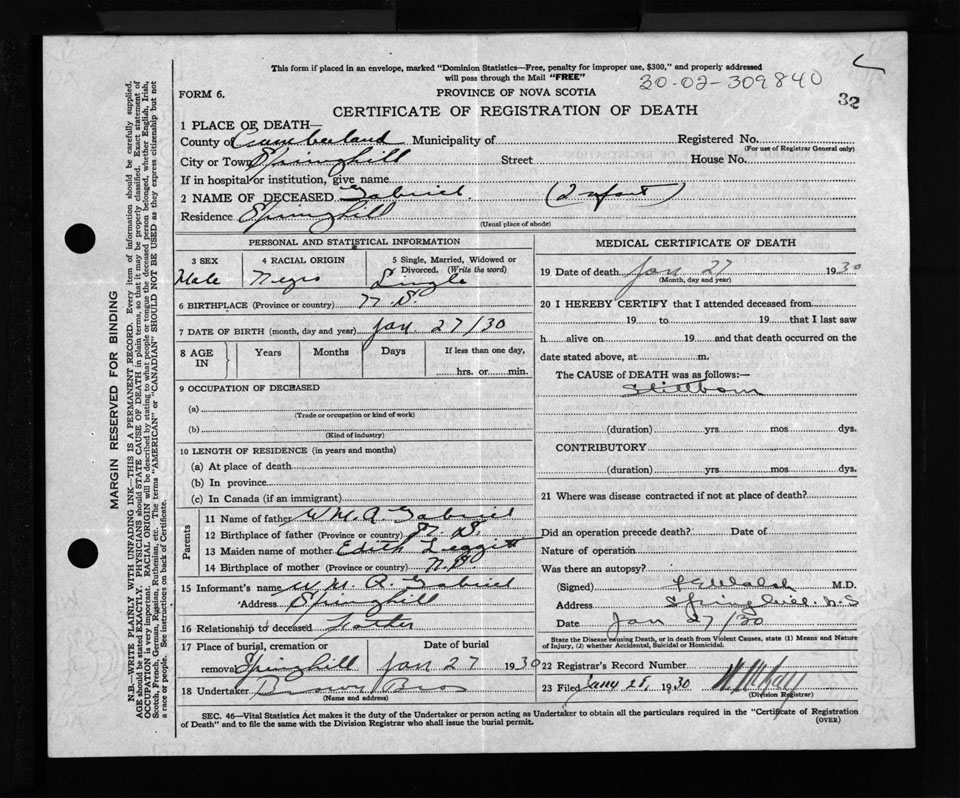 This form if placed in an envelope, marked "Dominion Statistics—Free, penalty for improper use, $300," and properly addressed
will pass through the Mail "FREE"
30-02-309840
FORM 6.
PROVINCE OF NOVA SCOTIA
32
CERTIFICATE OF REGISTRATION OF DEATH
1 PLACE OF DEATH—
County of Cumberland Municipality of Registered No.
(For use of Registrar General only)
City or Town Springhill Street House No.
If in hospital or institution, give name
2 NAME OF DECEASED Gabriel. (Infant)
Residence Springhill
(Usual place of abode)
PERSONAL AND STATISTICAL INFORMATION
3 SEX 4 RACIAL ORIGIN 5 Single, Married, Widowed or Divorced. (Write the word)
Male Negro Single
6 BIRTHPLACE (Province or country) N.S.
7 DATE OF BIRTH (month, day and year) Jan 27/30
8 AGE IN Years Months Days If less than one day,
hrs. or min.
9 OCCUPATION OF DECEASED
(a)
(Trade or occupation or kind of work)
(b)
(Kind of industry)
10 LENGTH OF RESIDENCE (in years and months)
(a) At place of death
(b) In province
(c) In Canada (if an immigrant)
Parents
11 Name of father Gabriel
12 Birthplace of father (Province or country) N.S.
13 Maiden name of mother Edith
14 Birthplace of mother (Province or country)
15 Informant's name Wm. R. Gabriel
Address Springhill
16 Relationship to deceased Father
17 Place of burial, cremation or removal Springhill
Date of burial
Jan 27 1930
18 Undertaker Brown Bros
(Name and address)
MEDICAL CERTIFICATE OF DEATH
19 Date of death Jan 27 1930
(Month, day and year)
20 I HEREBY CERTIFY that I attended deceased from
19 to 19 that I last saw
h alive on 19 and that death occurred on the
date stated above, at m.
The CAUSE of DEATH was as follows:—
Stillborn
(duration) yrs mos dys.
CONTRIBUTORY
(duration) yrs. mos. dys.
21 Where was disease contracted if not at place of death?
Did an operation precede death? Date of
Nature of operation
Was there an autopsy?
(Signed) Walsh M.D.
Address Springhill. N.S
Date Jan 27/30
State the Disease causing Death, or in death from Violent Causes, state (1) Means and Nature
of Injury, (2) whether Accidental, Suicidal or Homicidal.
22 Registrar's Record Number
23 Filed 1930
(Division Registrar)
SEC. 46—Vital Statistics Act makes it the duty of the Undertaker or person acting as Undertaker to obtain all the particulars required in the "Certificate of Registration
of Death" and to file the same with the Division Registrar who shall issue the burial permit.
(OVER)
MARGIN RESERVED FOR BINDING
N.B.—WRITE PLAINLY WITH UNFADING INK—THIS IS A PERMANENT RECORD. Every item of information should be carefully supplied.
AGE should be stated EXACTLY. PHYSICIANS should STATE CAUSE OF DEATH in plain terms, so that it may be properly classified. Exact statement of
OCCUPATION is very important. RACIAL ORIGIN will be described by stating to what people or tongue the deceased person belonged, whether English, Irish,
Scotch, French, German, Russian, Ruthenian, etc. The terms "AMERICAN" or "CANADIAN" SHOULD NOT BE USED as they express citizenship but not
a race or people. See instructions on back of Certificate.